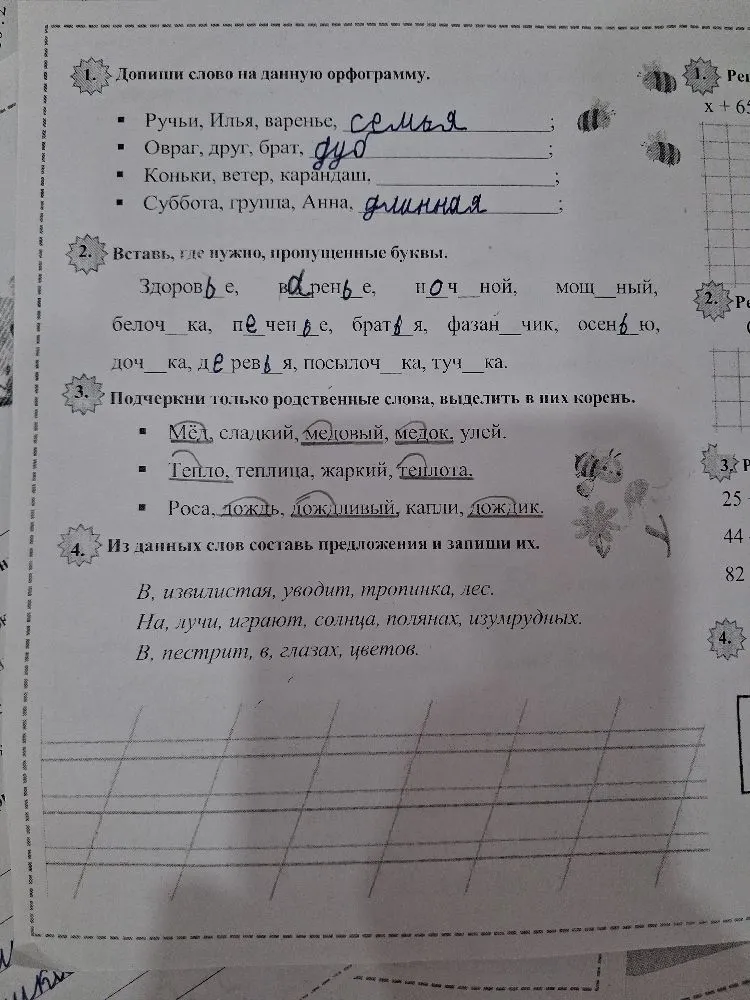 1. Допиши слово на данную орфограмму.
1. Реш
▪ Ручьи, Илья, варенье, семья;
x + 65
▪ Овраг, друг, брат, дуб;
▪ Коньки, ветер, карандаш, ;
▪ Суббота, группа, Анна, длинная;
2. Вставь, где нужно, пропущенные буквы.
Здоровье, варенье, ноч__ной, мощ__ный,
2. Ре
белоч__ка, печенье, братья, фазан__чик, осенью,
доч__ка, деревья, посылоч__ка, туч__ка.
3. Подчеркни только родственные слова, выделить в них корень.
▪ Мёд, сладкий, медовый, медок, улей.
▪ Тепло, теплица, жаркий, теплота.
3. Р
▪ Роса, дождь, дождливый, капли, дождик.
25
4. Из данных слов составь предложения и запиши их.
44
В, извилистая, уводит, тропинка, лес.
82
На, лучи, играют, солнца, полянах, изумрудных.
4.
В, пестрит, в, глазах, цветов.